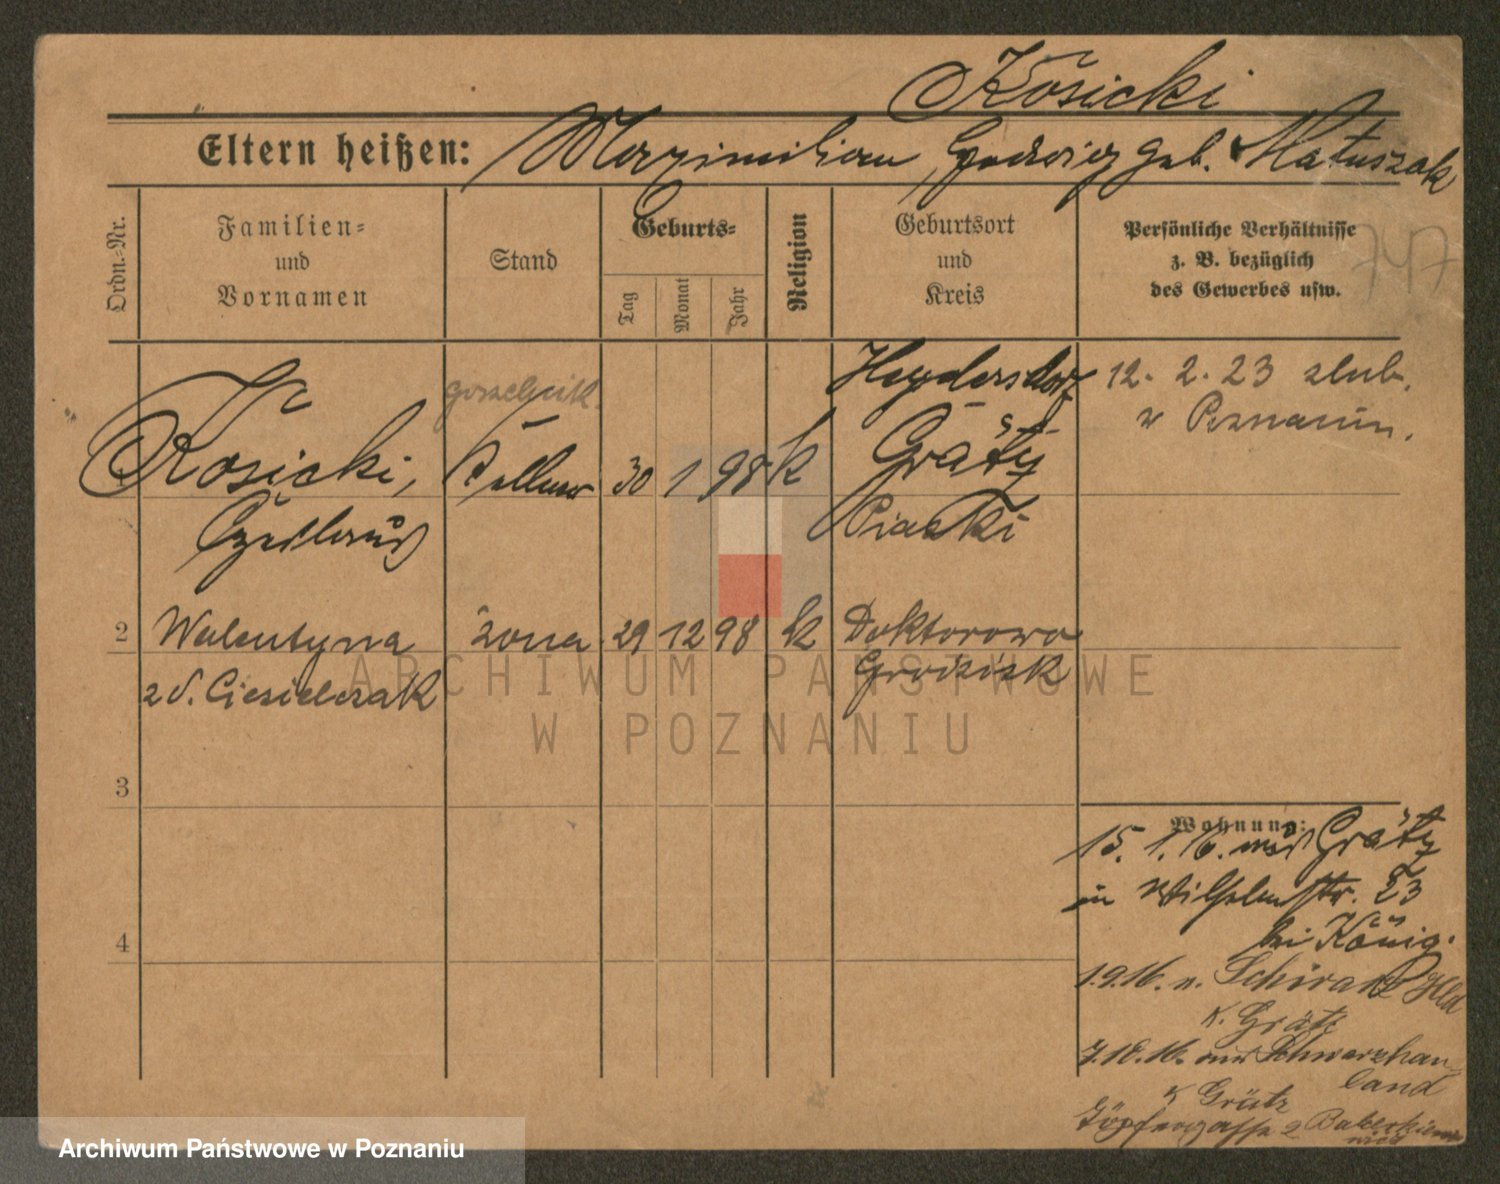 Kosicki
Eltern heißen: Maximilian, Hedwig geb. Matuszak
Ordn.-Nr.
Familien-
und
Vornamen
Stand
Geburts-
Tag
Monat
Jahr
Religion
Geburtsort
und
Kreis
Persönliche Verhältnisse
z. B. bezüglich
des Gewerbes usw.
747
Kosicki,
Kellner
30 1 98 k
Heydersdorf
Grätz
Piaski
12. 2. 23 slub.
w Poznaniu.
2 Walentyna
z d. Ciesielczak
żona
29 12 98 k
Doktorowo
Grodzisk
3
4
Wohnung:
15. 1. 16. aus Grätz
in Wilhelmstr. 23
bei König.
1.9.16. n. Hld
K. Grätz
7.10.16. aus Schwarzhau-
land
K Grätz
Töpfergasse 2
ARCHIWUM PAŃSTWOWE
W POZNANIU
Archiwum Państwowe w Poznaniu